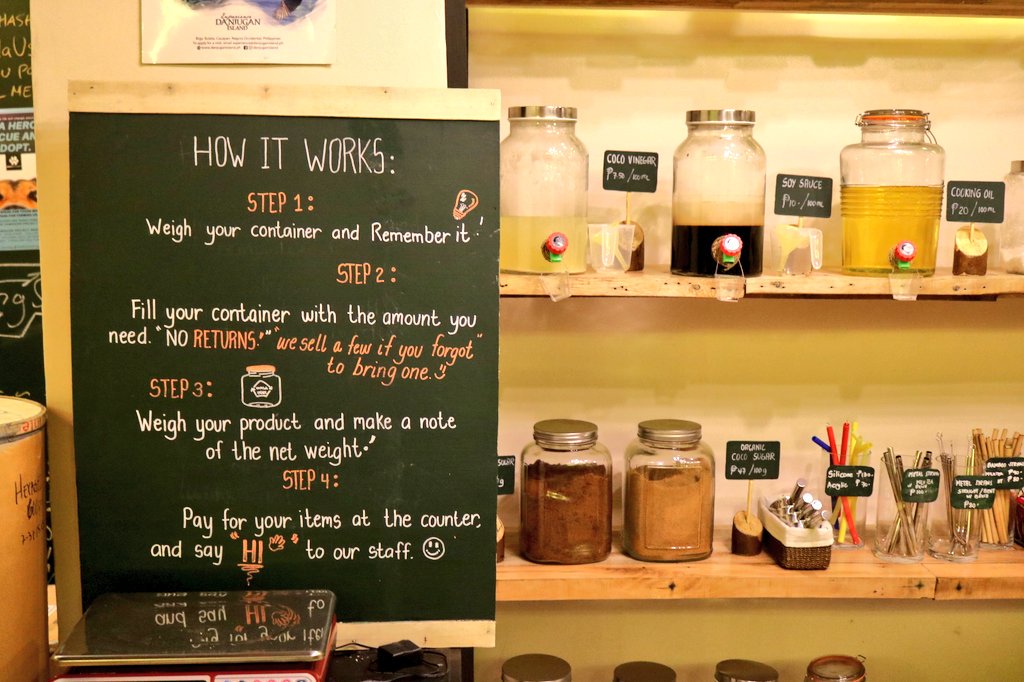 DANJUGAN
ISLAND
MASH
A HERO
CUE AN
DOPT.
HOW IT WORKS:
STEP 1:
Weigh your container and Remember it!
STEP 2:
Fill your container with the amount you
need. "NO RETURNS!" "we sell a few if you forgot"
to bring one.
STEP 3:
Weigh your product and make a note
of the net weight.
STEP 4:
Pay for your items at the counter,
and say "HI" to our staff.
COCO VINEGAR
₱7.50 /100mL
SOY SAUCE
₱10.- /100mL
COOKING OIL
₱20 /100mL
ORGANIC
COCO SUGAR
₱47/100g
Silicone
Acrylic
METAL STRAWS
METAL STRAWS